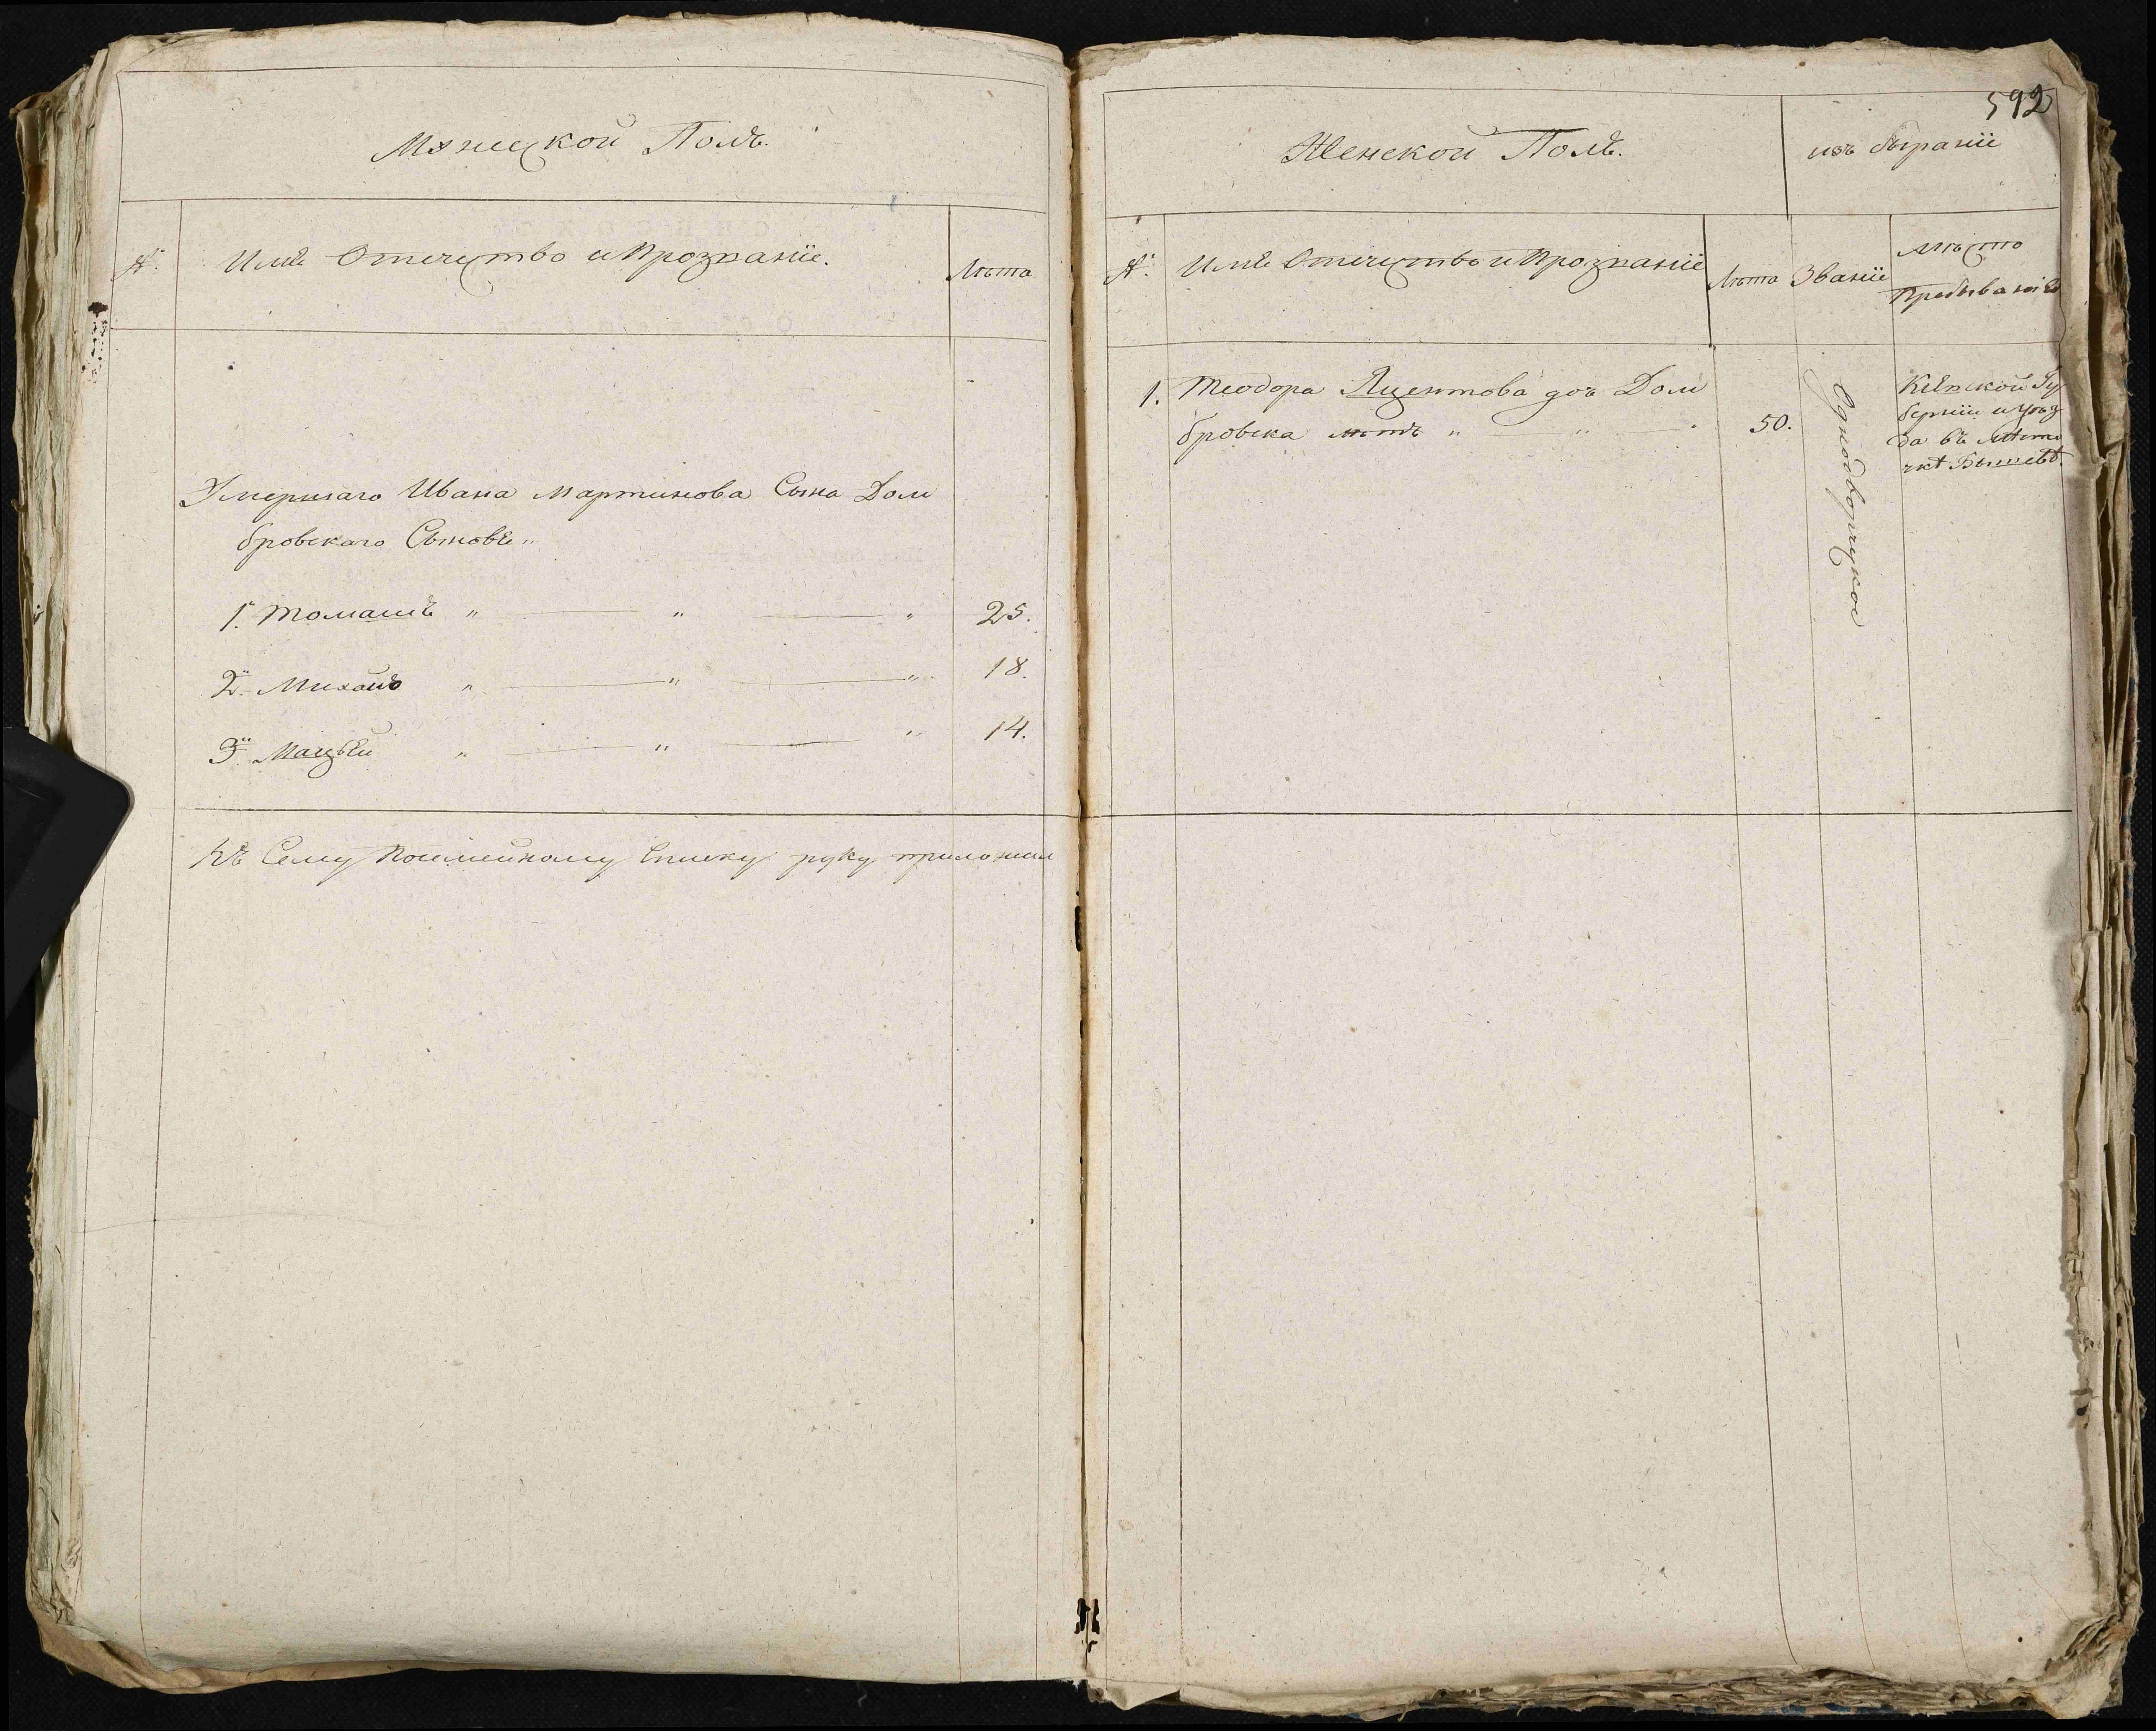 Мужеской Полъ.
№.
Имѣ Отечество и Прозванiе.
Лѣта
Умершаго Ивана Мартинова Сына Дом
бровскаго Сыновѣ„
1й. Томашъ „ — „ — „ 25.
2й. Михаилъ „ — „ — „ 18.
3й. Мацѣй „ — „ — „ 14.
Къ Сему Посемейному Списку руку приложил
592
Женской Полъ.
№.
Имѣ Отечество и Прозванiе
Лѣта
Званiе
Мѣсто
Пребыванiѣ
1. Теодора Яцентова доч Дом
бровска „ — „ — 50.
Однодворческое
Кіевской Гу
бернии и уѣз
да въ Мѣсте
чкѣ Бышевѣ.